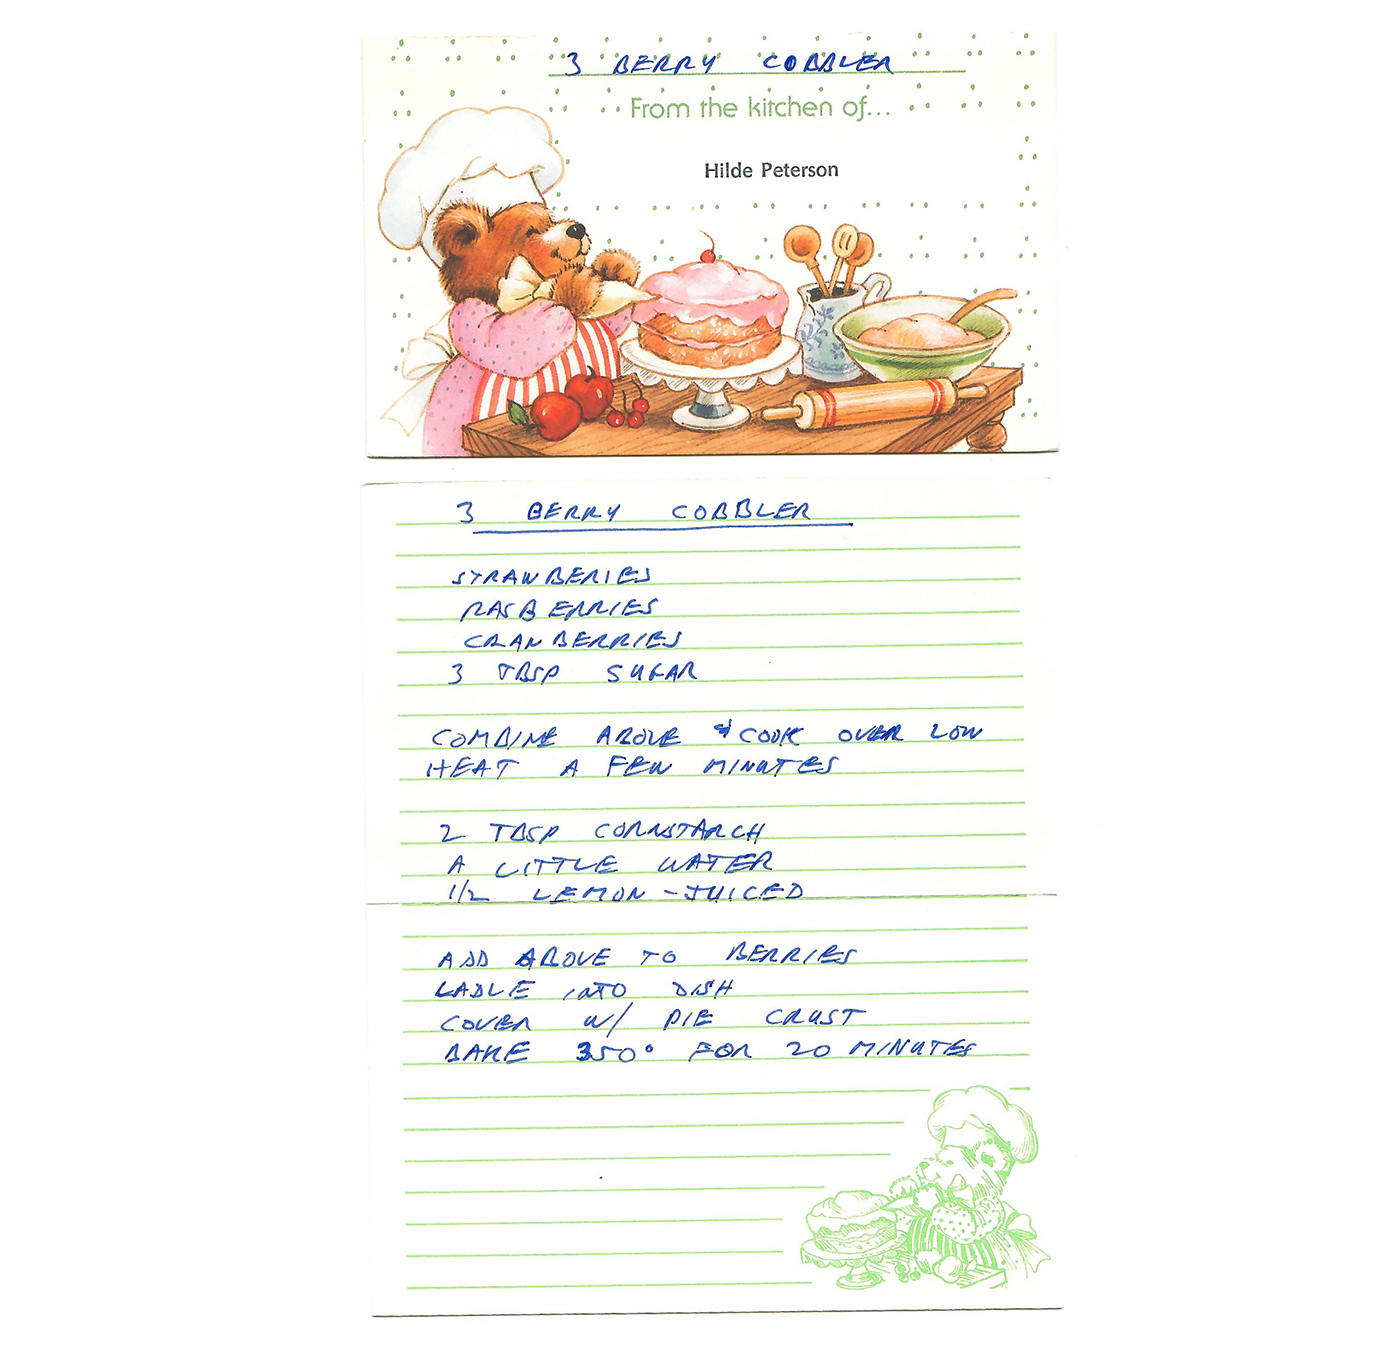 3 BERRY COBBLER
From the kitchen of...
Hilde Peterson
3 BERRY COBBLER
STRAWBERIES
RASBERRIES
CRANBERRIES
3 TBSP SUGAR
COMBINE ABOVE & COOK OVER LOW
HEAT A FEW MINUTES
2 TBSP CORNSTARCH
A LITTLE WATER
1/2 LEMON - JUICED
ADD ABOVE TO BERRIES
LADLE INTO DISH
COVER W/ PIE CRUST
BAKE 350° FOR 20 MINUTES